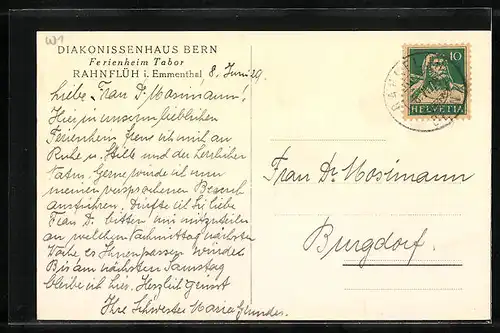 DIAKONISSENHAUS BERN
Ferienheim Tabor
RAHNFLÜH i. Emmenthal 8. Juni 29.
Liebe Frau Dr. Mosimann!
Hier in unserm lieblichen
Ferienheim freue ich mich an
Ruhe u. Stille und der herrlichen
Natur. Gerne würde ich nun
meinen versprochenen Besuch
ausführen. Dürfte ich Sie liebe
Frau Dr. bitten mir mitzuteilen
an welchem Nachmittag nächste
Woche es Ihnen passen würde?
Bis am nächsten Samstag
bleibe ich hier. Herzlich grüsst
Ihre Schwester Maria
10
HELVETIA
Frau Dr. Mosimann
Burgdorf.